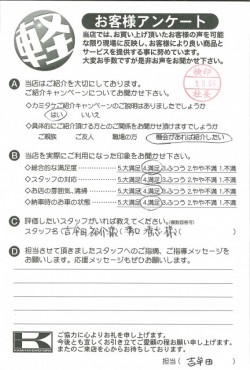 軽
お客様アンケート
当店では、お買い上げ頂いたお客様の声を可能
な限り現場に反映し、お客様により良い商品と
サービスを提供する事に努めています。
大変お手数ですが是非お声をお聞かせ下さい。
検印
社長
A 当店はご紹介を大切にしております。
ご紹介キャンペーンについてお聞かせ下さい。
◇カミタケご紹介キャンペーンのご説明はありましたでしょうか
はい いいえ
◇具体的にご紹介頂ける方とのご関係をお聞かせ頂けますでしょうか
ご親族 ご友人 職場の方 機会があれば紹介したい
B 当店を実際にご利用になった印象をお聞かせ下さい。
◇総合的な満足度 5.大満足 4.満足 3.ふつう 2.やや不満 1.不満
◇スタッフの対応 5.大満足 4.満足 3.ふつう 2.やや不満 1.不満
◇お店の雰囲気、清掃 5.大満足 4.満足 3.ふつう 2.やや不満 1.不満
◇納車時のお車の状態 5.大満足 4.満足 3.ふつう 2.やや不満 1.不満
C 評価したいスタッフがいれば教えてください。(複数回答可)
スタッフ名
D 担当させて頂きましたスタッフへのご指摘、ご指導メッセージを
お願いします。応援メッセージもぜひお願いします。
K
ご協力に心よりお礼を申し上げます。
今後とも宜しくお引き立てご愛顧の程お願い申し上げます。
またのご来店を心からお待ちしております。
担当( 吉牟田 )